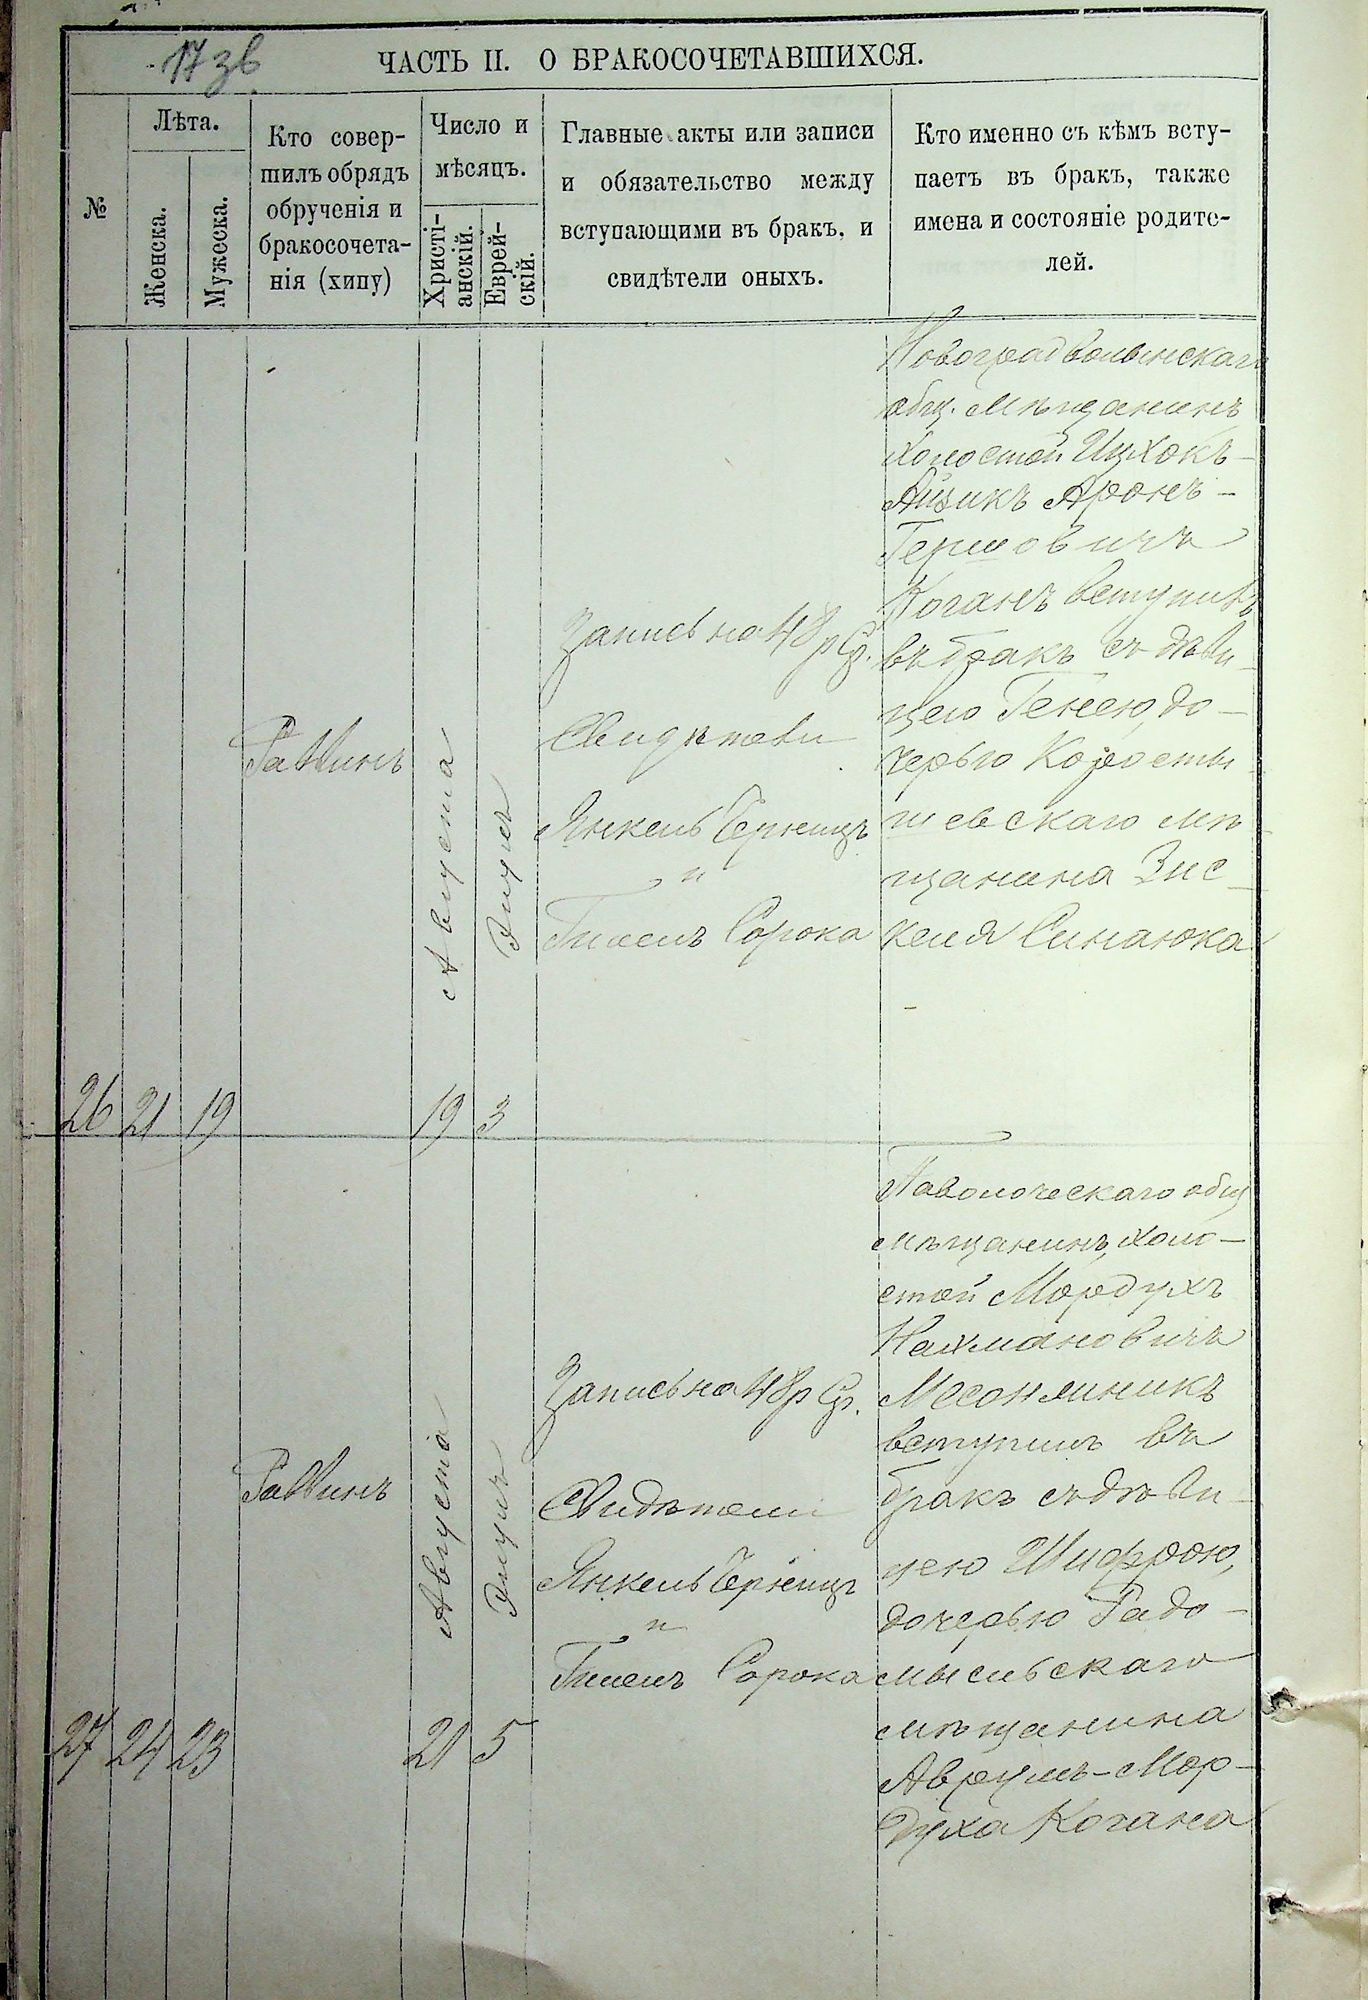 17 зв
ЧАСТЬ II. О БРАКОСОЧЕТАВШИХСЯ.
№
Лѣта.
Женска.
Мужеска.
Кто совер-
шилъ обрядъ
обрученія и
бракосочета-
нія (хипу)
Число и
мѣсяцъ.
Христі-
анскій.
Еврей-
скій.
Главные акты или записи
и обязательство между
вступающими въ бракъ, и
свидѣтели оныхъ.
Кто именно съ кѣмъ всту-
паетъ въ бракъ, также
имена и состояніе родите-
лей.
26
21
19
Раввинъ
Августа
19
Элулъ
3
Запись на 48 р Ср.
Свидѣтели
Янкель
и
Сорока
Новоградволынскаго
общ. мѣщанинъ
холостой Ицхокъ-
Айзикъ Аронъ-
Гершовичъ
Коганъ вступилъ
въ бракъ съ дѣви-
цею Генею, до-
черью Коросты-
шевскаго мѣ-
щанина Зис-
келя Синаюка
27
24
23
Раввинъ
Августа
21
Элулъ
5
Запись на 48 р Ср.
Свидѣтели
Янкель
и
Сорока
Паволочскаго общ
мѣщанинъ, холо-
стой Мордухъ
Нахмановичъ
вступилъ въ
бракъ съ дѣви-
цею Шифрою,
дочерью Радо-
мысльскаго
мѣщанина
Аврумъ-Мор-
духа Когана